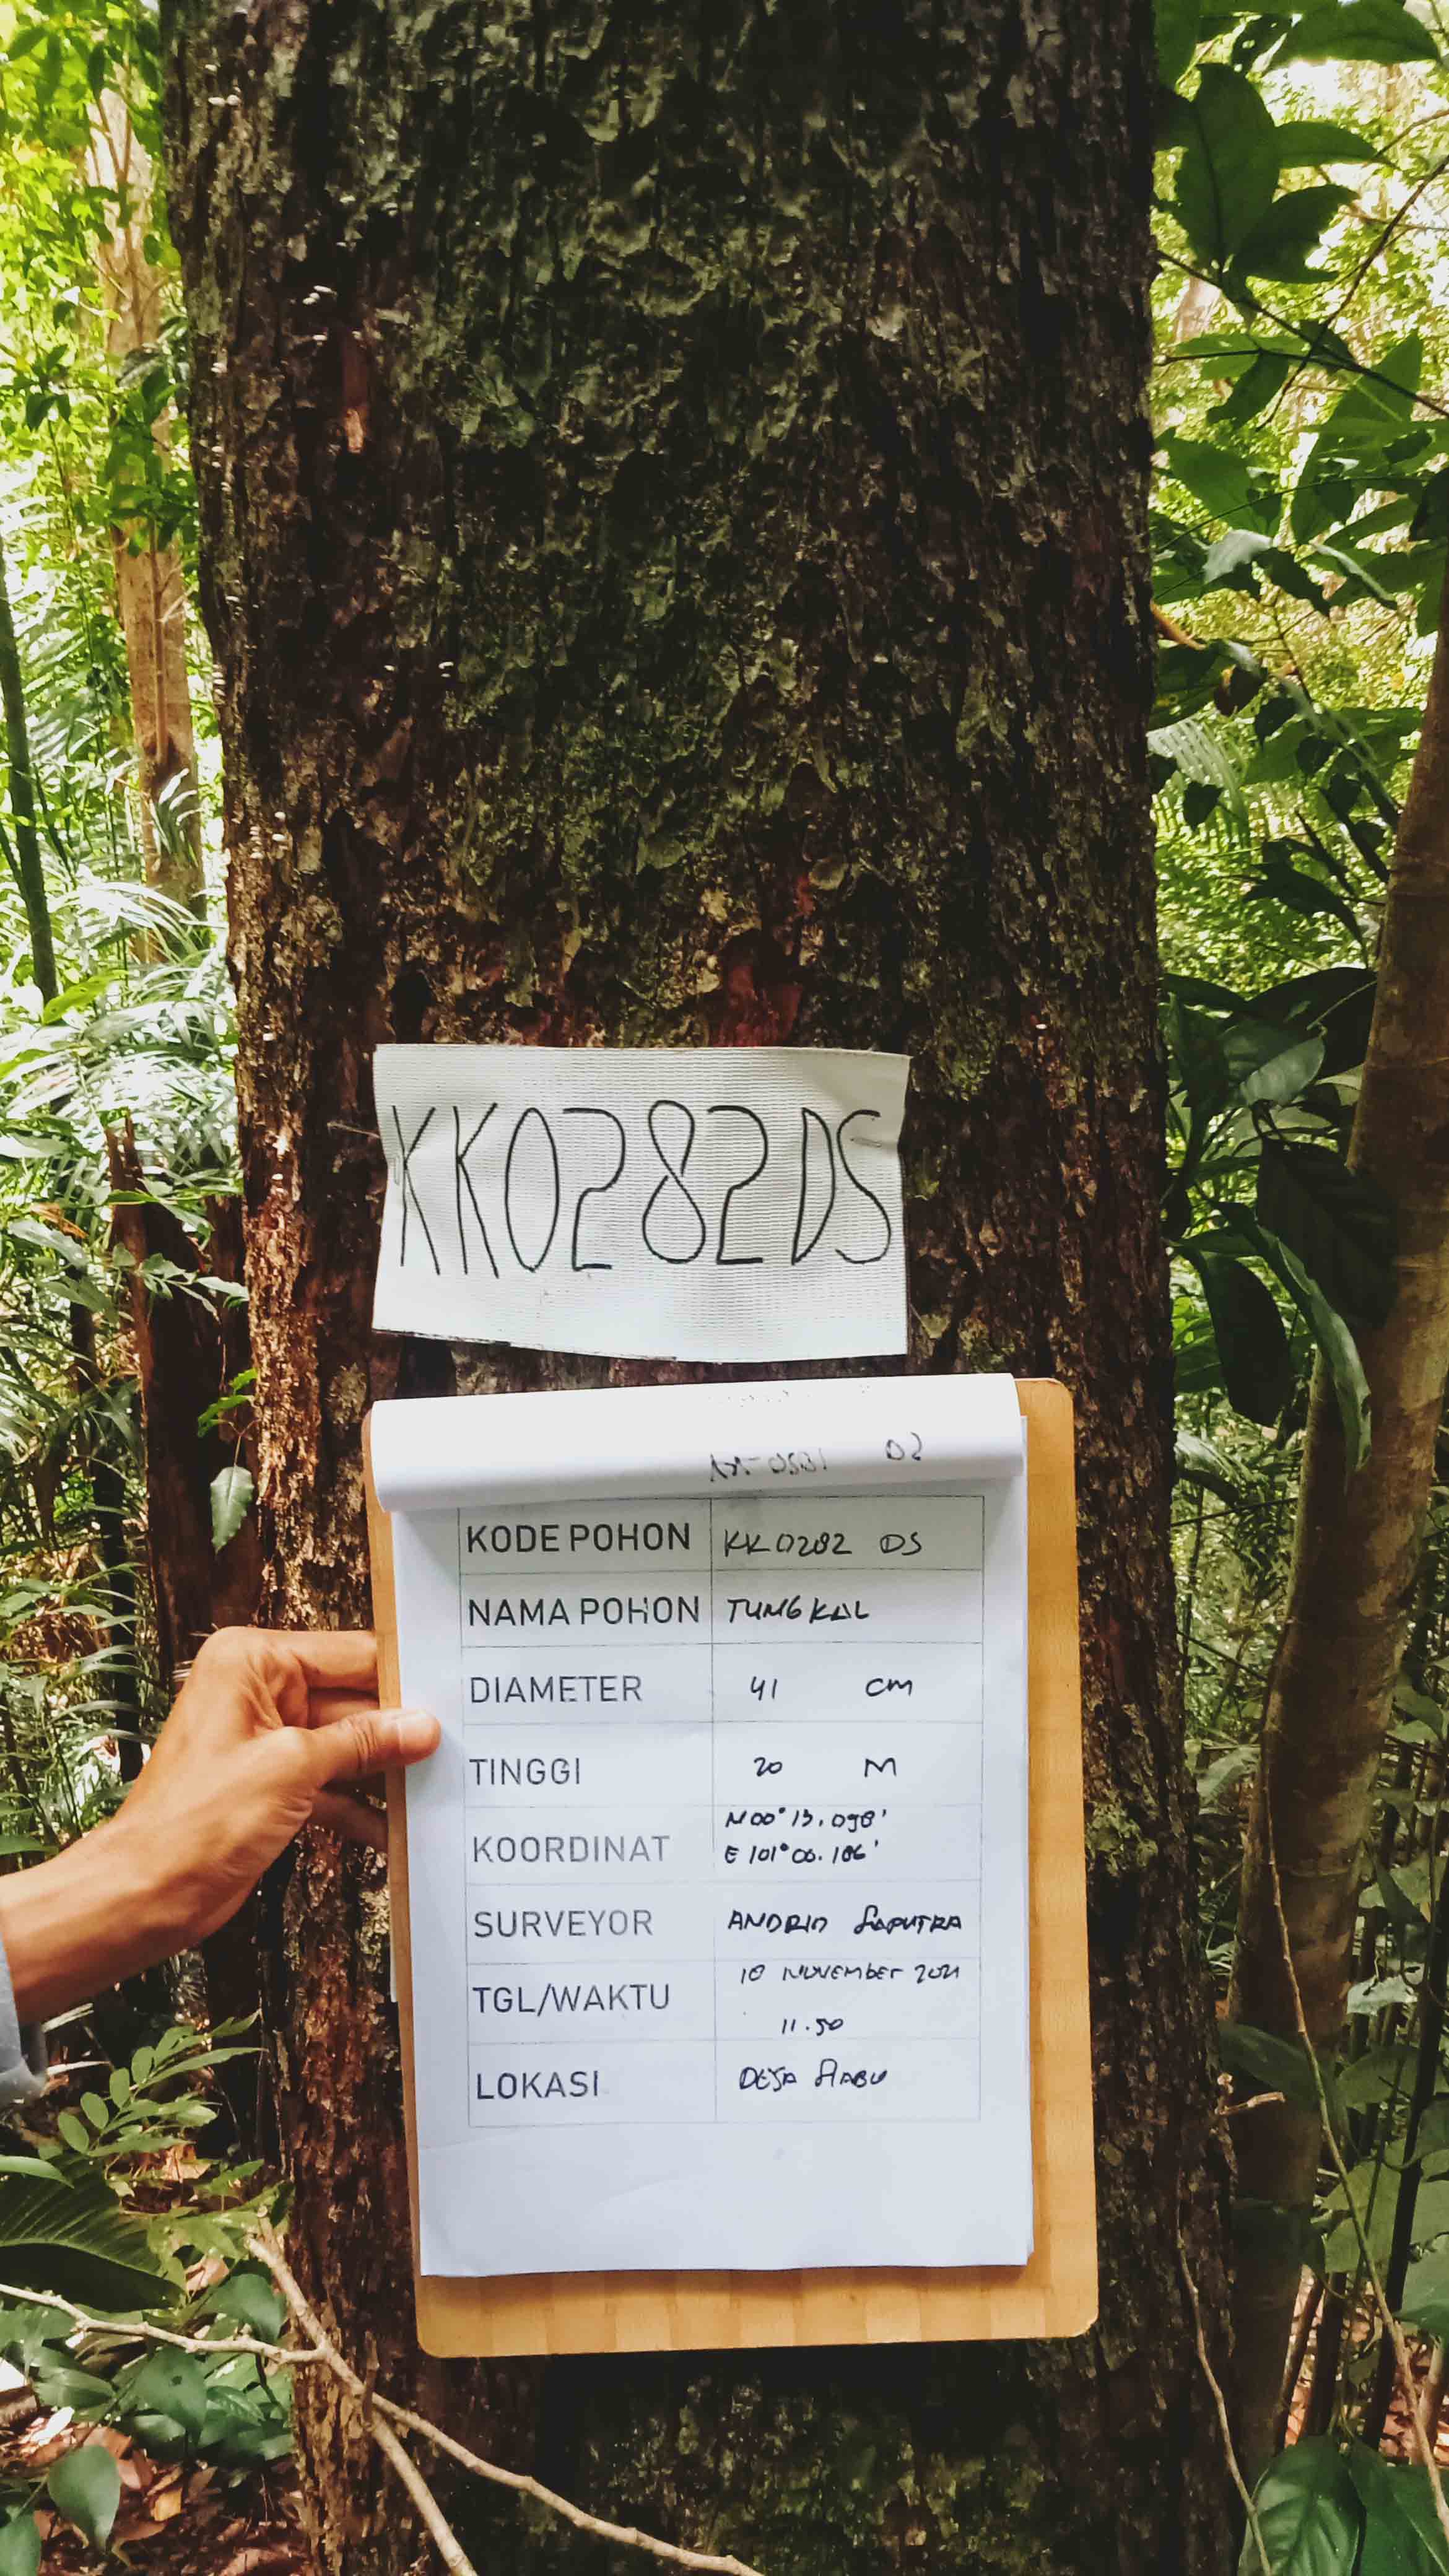 KK0282DS
KODE POHON KK0282 DS
NAMA POHON TUNGKAL
DIAMETER 41 CM
TINGGI 20 M
KOORDINAT N 00° 13.098'
E 101° 06.186'
SURVEYOR ANDRIO SAPUTRA
TGL/WAKTU 18 NOVEMBER 2021
11.50
LOKASI DESA SIABU